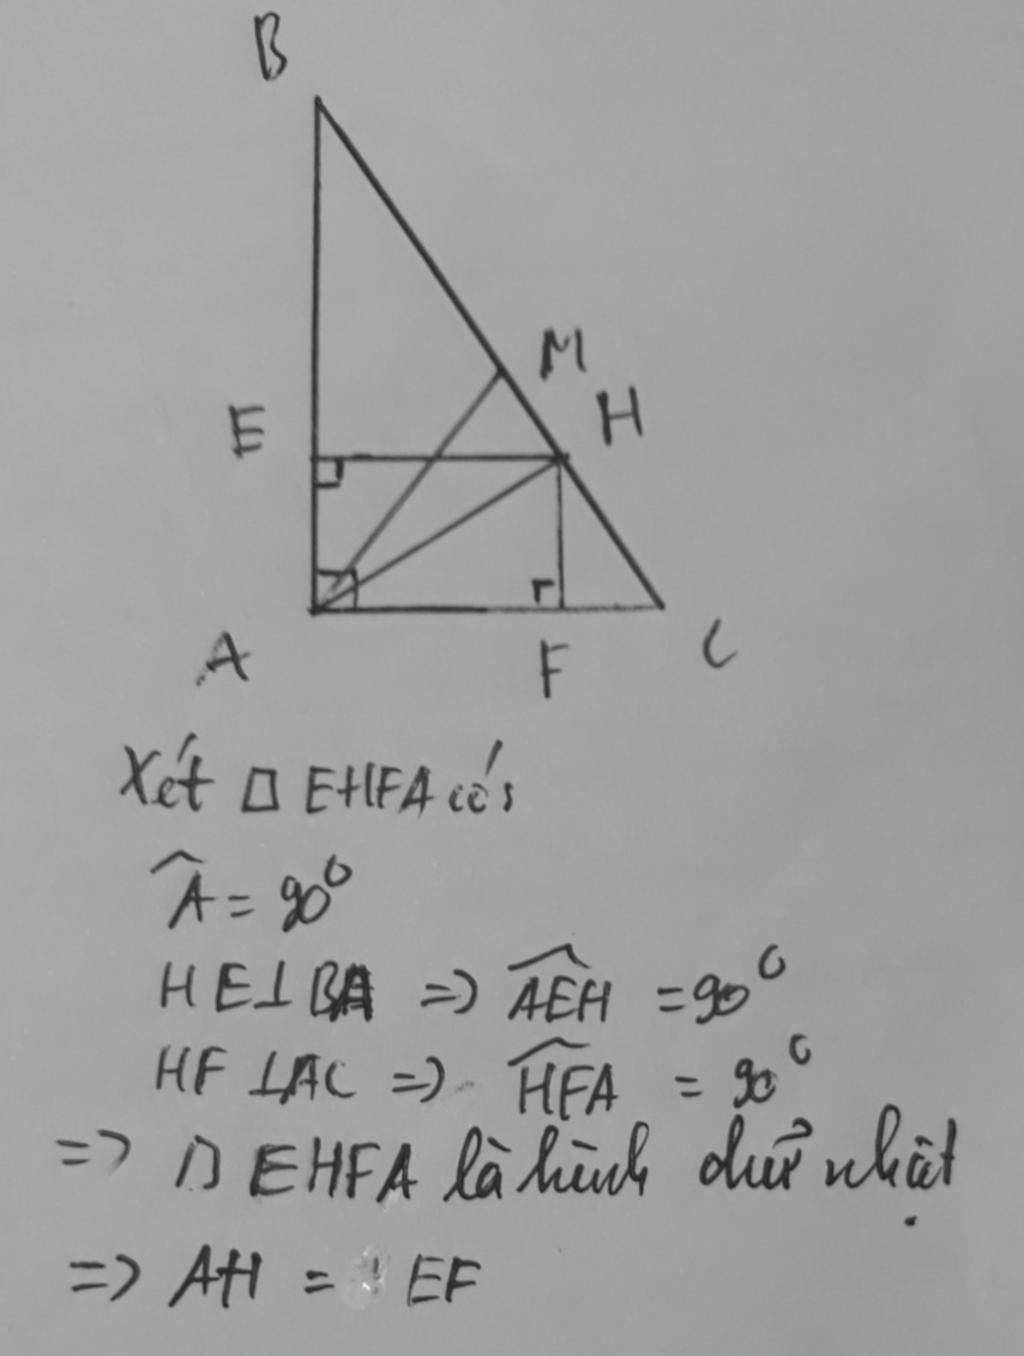 B
M
H
E
A
F
C
Xét □ EHFA có:
Â = 90⁰
HE⊥BA => AEH = 90⁰
HF ⊥AC => HFA = 90⁰
=> □ EHFA là hình chữ nhật
=> AH = EF